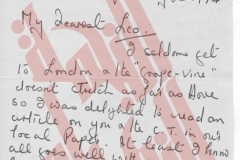 My dearest Leo.
I seldom get
to London & the "grape-vine"
doesn't stretch as far as Hove
so I was delighted to read an
article on you & C.T. in our
local Paper. At least I know
all goes well with